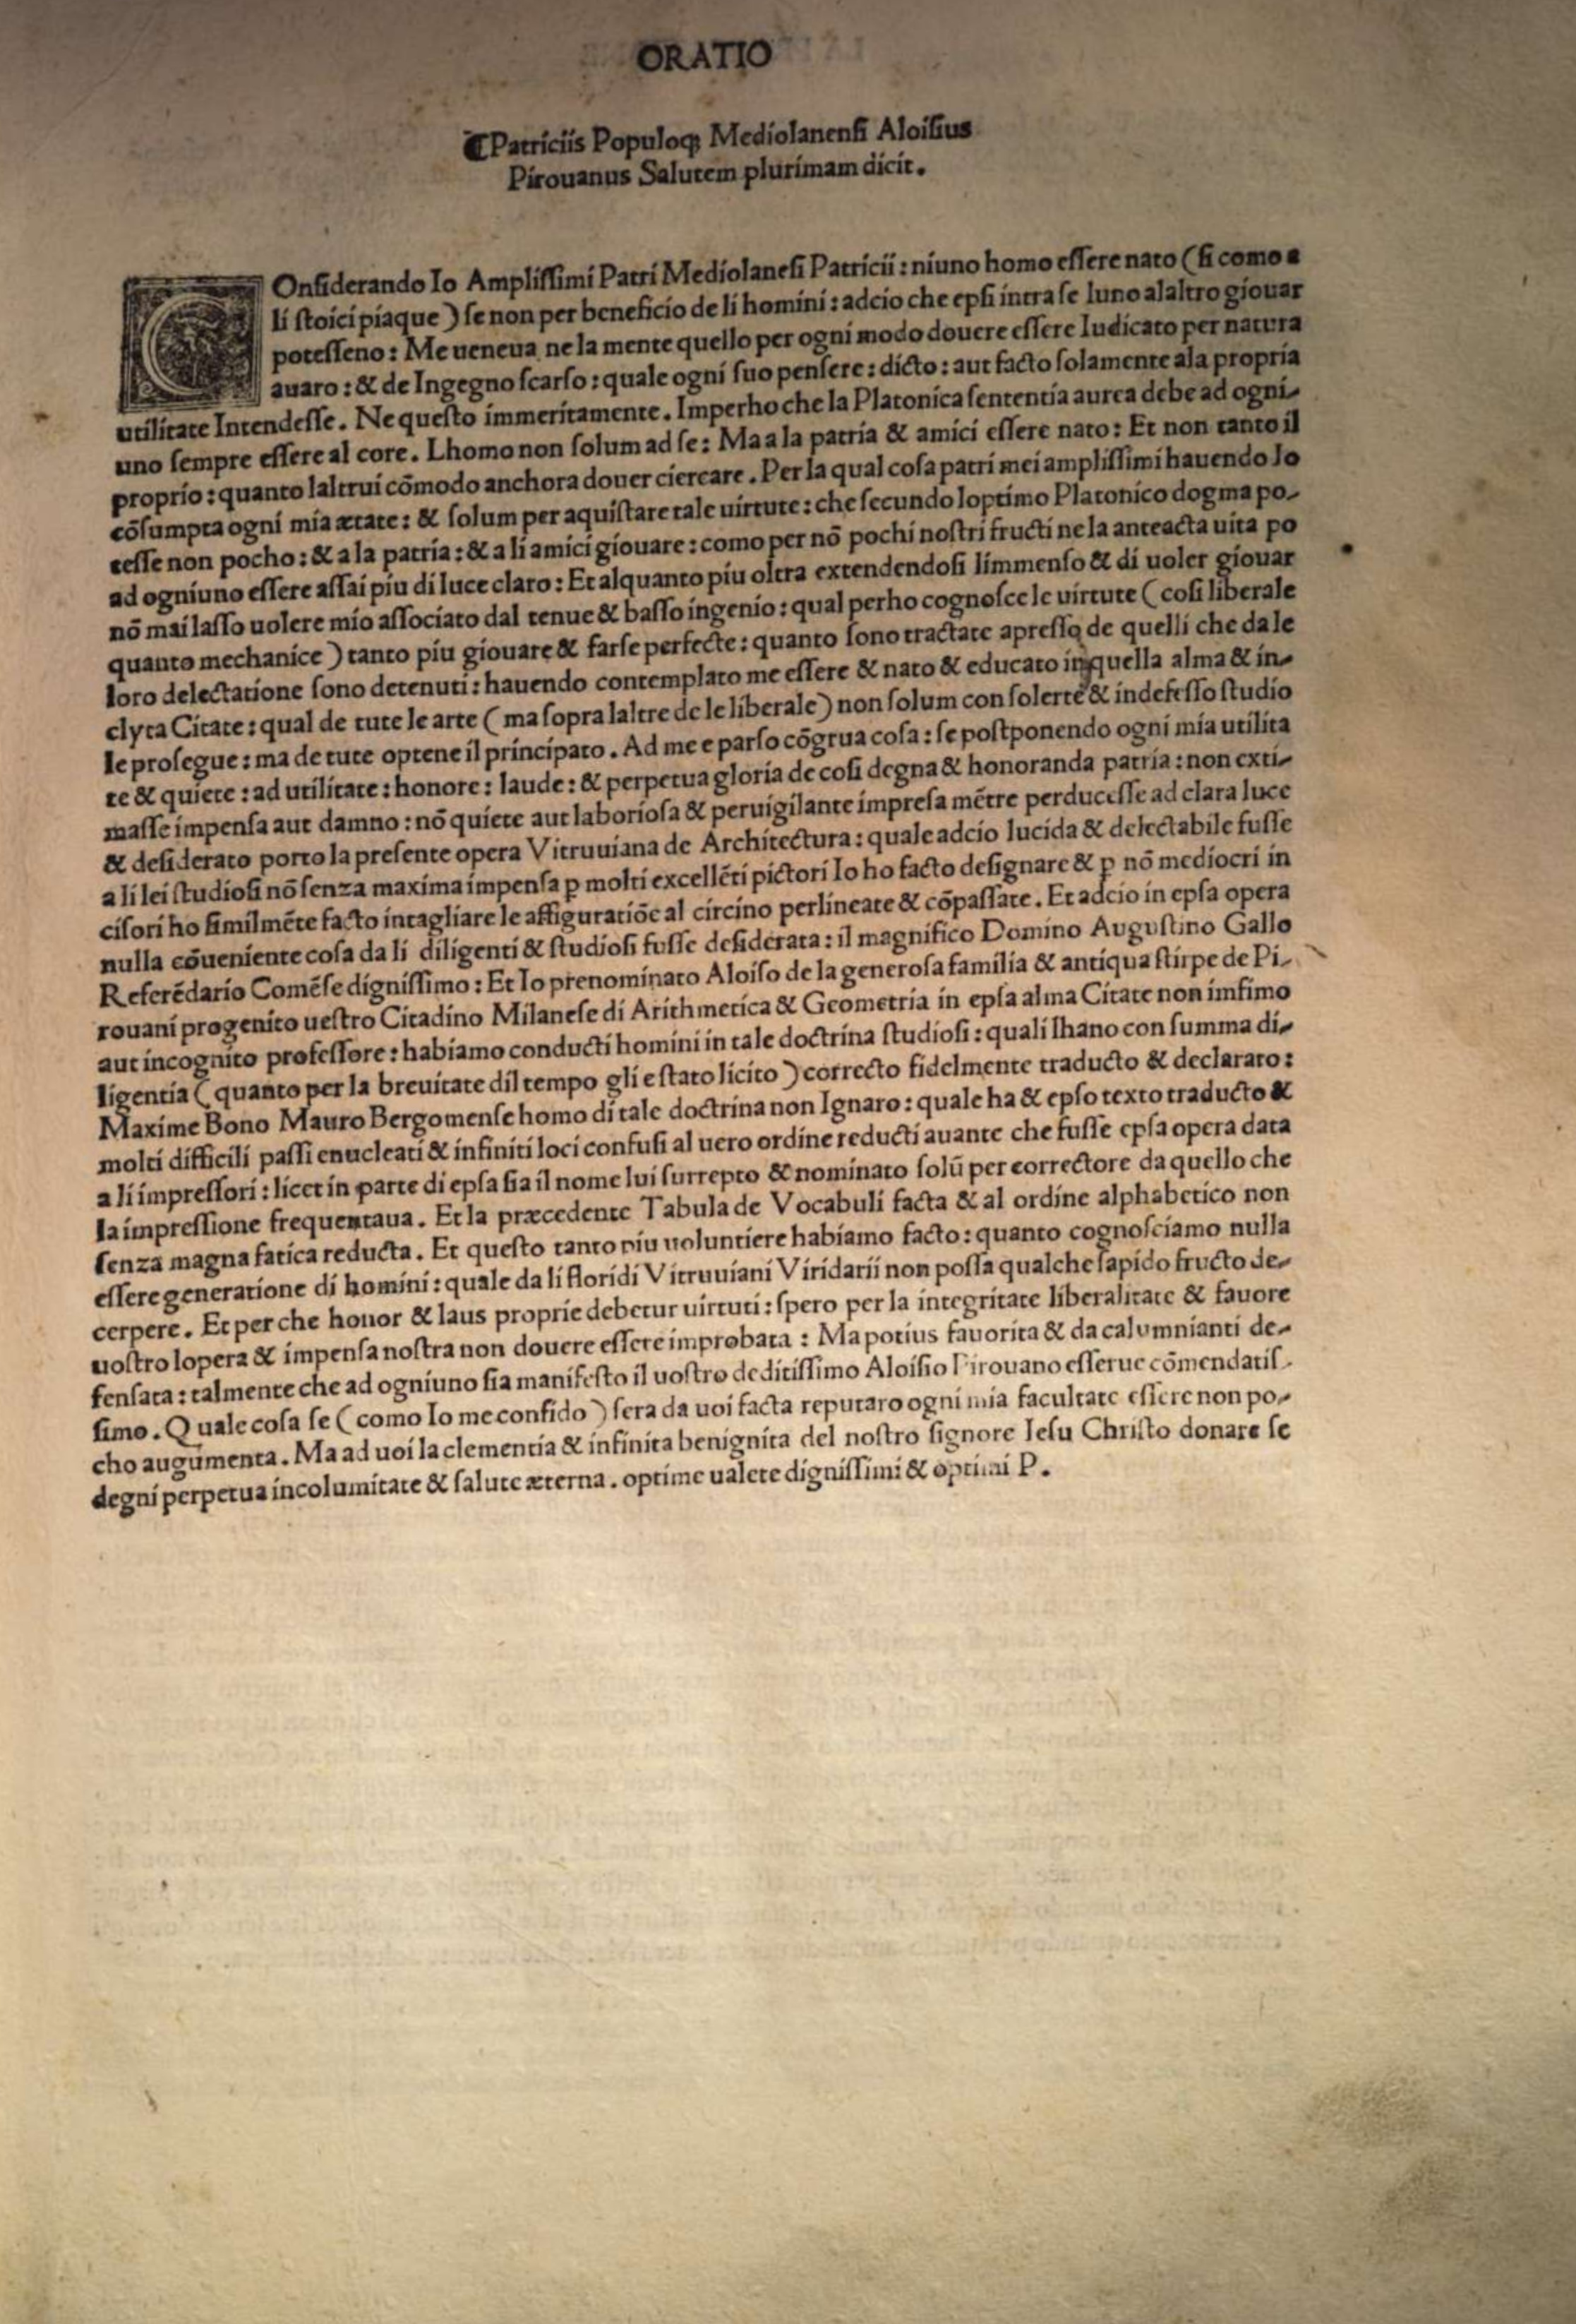 ORATIO
⁋Patriciis Populoqꝫ Mediolanenſi Aloiſius
Pirouanus Salutem plurimam dicit.
COnſiderando Io Ampliſſimi Patri Mediolaneſi Patricii : niuno homo eſſere nato ( ſi como a
li ſtoici piaque ) ſe non per beneficio de li homini : adcio che epſi intra ſe luno alaltro giouar
poteſſeno : Me ueneua ne la mente quello per ogni modo douere eſſere Iudicato per natura
auaro : & de Ingegno ſcarſo : quale ogni ſuo penſere : dicto : aut facto ſolamente ala propria
utilitate Intendeſſe. Ne queſto immeritamente. Imperho che la Platonica ſententia aurea debe ad ogni-
uno ſempre eſſere al core. Lhomo non ſolum ad ſe : Ma a la patria & amici eſſere nato : Et non tanto il
proprio : quanto laltrui cõmodo anchora douer ciercare. Per la qual coſa patri mei ampliſſimi hauendo Io
cõſumpta ogni mia ætate : & ſolum per aquiſtare tale uirtute : che ſecundo loptimo Platonico dogma po-
teſſe non pocho : & a la patria : & a li amici giouare : como per nõ pochi noſtri fructi ne la anteacta uita po
ad ogniuno eſſere aſſai piu di luce claro : Et alquanto piu oltra extendendoſi limmenſo & di uoler giouar
nõ mai laſſo uolere mio aſſociato dal tenue & baſſo ingenio : qual perho cognoſce le uirtute ( coſi liberale
quanto mechanice ) tanto piu giouare & farſe perfecte : quanto ſono tractate apreſſo de quelli che da le
loro delectatione ſono detenuti : hauendo contemplato me eſſere & nato & educato in quella alma & in-
clyta Citate : qual de tute le arte ( ma ſopra laltre de le liberale ) non ſolum con ſolerte & indefeſſo ſtudio
le proſegue : ma de tute optene il principato. Ad me e parſo cõgrua coſa : ſe poſtponendo ogni mia utilita
te & quiete : ad utilitate : honore : laude : & perpetua gloria de coſi degna & honoranda patria : non exti-
maſſe impenſa aut damno : nõ quiete aut laborioſa & peruigilante impreſa mẽtre perduceſſe ad clara luce
& deſiderato porto la preſente opera Vitruuiana de Architectura : quale adcio lucida & delectabile fuſſe
a li lei ſtudioſi nõ ſenza maxima impenſa ꝑ molti excellẽti pictori Io ho facto deſignare & ꝑ nõ mediocri in
ciſori ho ſimilmẽte facto intagliare le affiguratiõe al circino perlineate & cõpaſſate. Et adcio in epſa opera
nulla cõueniente coſa da li diligenti & ſtudioſi fuſſe deſiderata : il magnifico Domino Auguſtino Gallo
Referẽdario Comẽſe digniſſimo : Et Io prenominato Aloiſo de la generoſa familia & antiqua ſtirpe de Pi-
rouani progenito ueſtro Citadino Milaneſe di Arithmetica & Geometria in epſa alma Citate non imfimo
aut incognito profeſſore : habiamo conducti homini in tale doctrina ſtudioſi : quali lhano con ſumma di-
ligentia ( quanto per la breuitate dil tempo gli e ſtato licito ) correcto fidelmente traducto & declarato :
Maxime Bono Mauro Bergomenſe homo di tale doctrina non Ignaro : quale ha & epſo texto traducto &
molti difficili paſſi enucleati & infiniti loci confuſi al uero ordine reducti auante che fuſſe epſa opera data
a li impreſſori : licet in parte di epſa ſia il nome lui ſurrepto & nominato ſolũ per correctore da quello che
la impreſſione frequentaua. Et la præcedente Tabula de Vocabuli facta & al ordine alphabetico non
ſenza magna fatica reducta. Et queſto tanto piu uoluntiere habiamo facto : quanto cognoſciamo nulla
eſſere generatione di homini : quale da li floridi Vitruuiani Viridarii non poſſa qualche ſapido fructo de-
cerpere. Et per che honor & laus proprie debetur uirtuti : ſpero per la integritate liberalitate & fauore
uoſtro lopera & impenſa noſtra non douere eſſere improbata : Ma potius fauorita & da calumnianti de-
fenſata : talmente che ad ogniuno ſia manifeſto il uoſtro deditiſſimo Aloiſio Pirouano eſſerue cõmendatiſ-
ſimo. Quale coſa ſe ( como Io me confido ) ſera da uoi facta reputaro ogni mia facultate eſſere non po-
cho augumenta. Ma ad uoi la clementia & infinita benignita del noſtro ſignore Ieſu Chriſto donare ſe
degni perpetua incolumitate & ſalute æterna. optime ualete digniſſimi & optimi P.